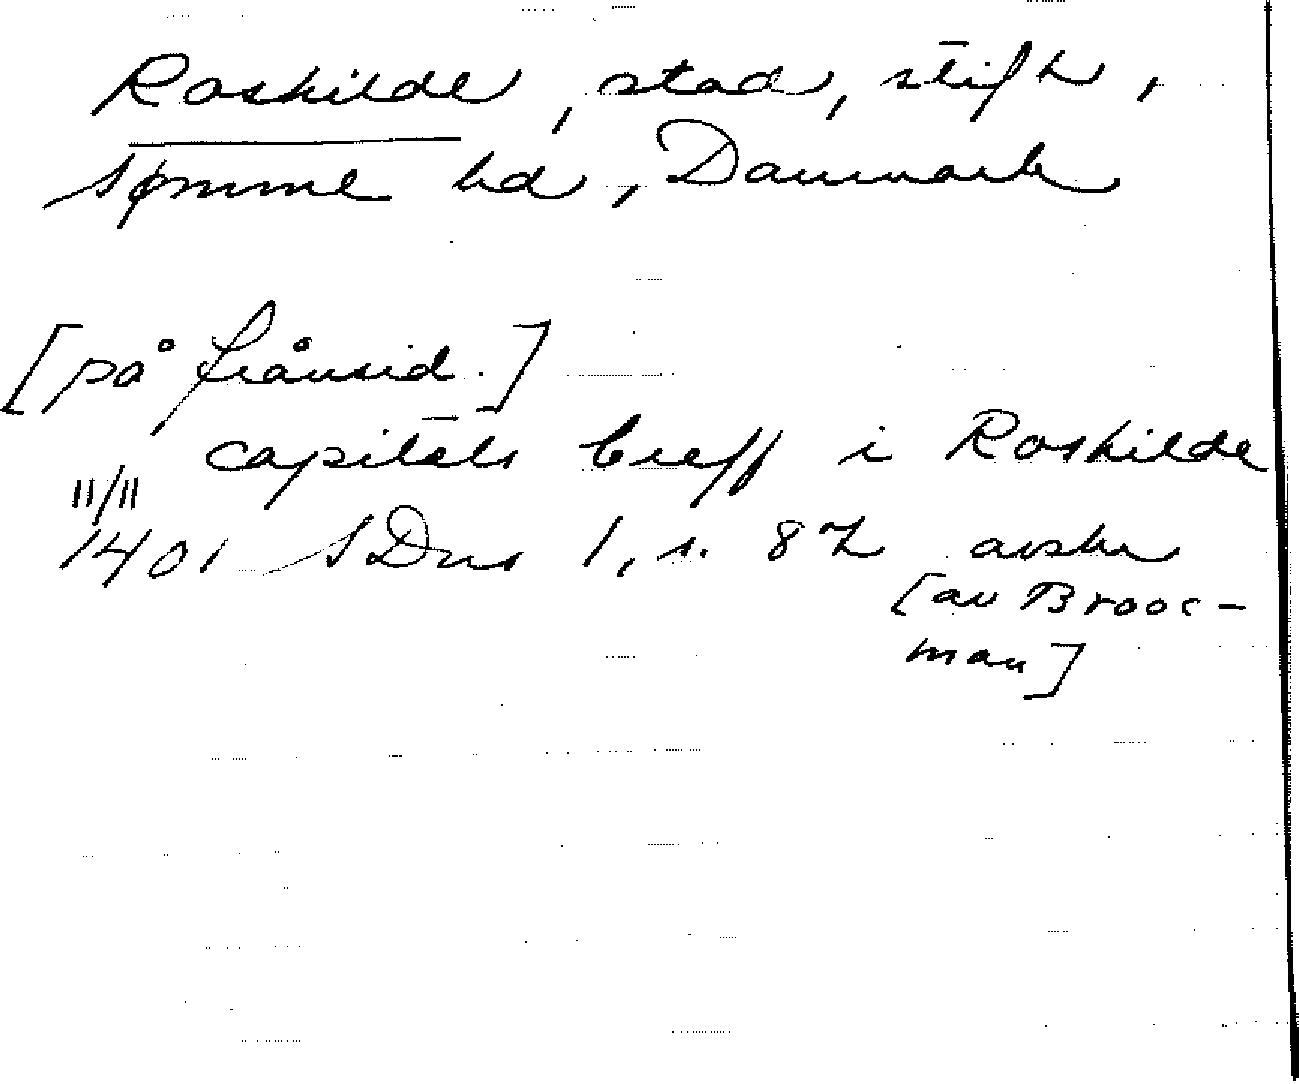 Roskilde, stad, stift,
Sømme hd, Danmark
[på frånsid.]
capitels breff i Roskilde
11/11
1401 SDns 1, s. 87 avskr
[av Brooc-
man]